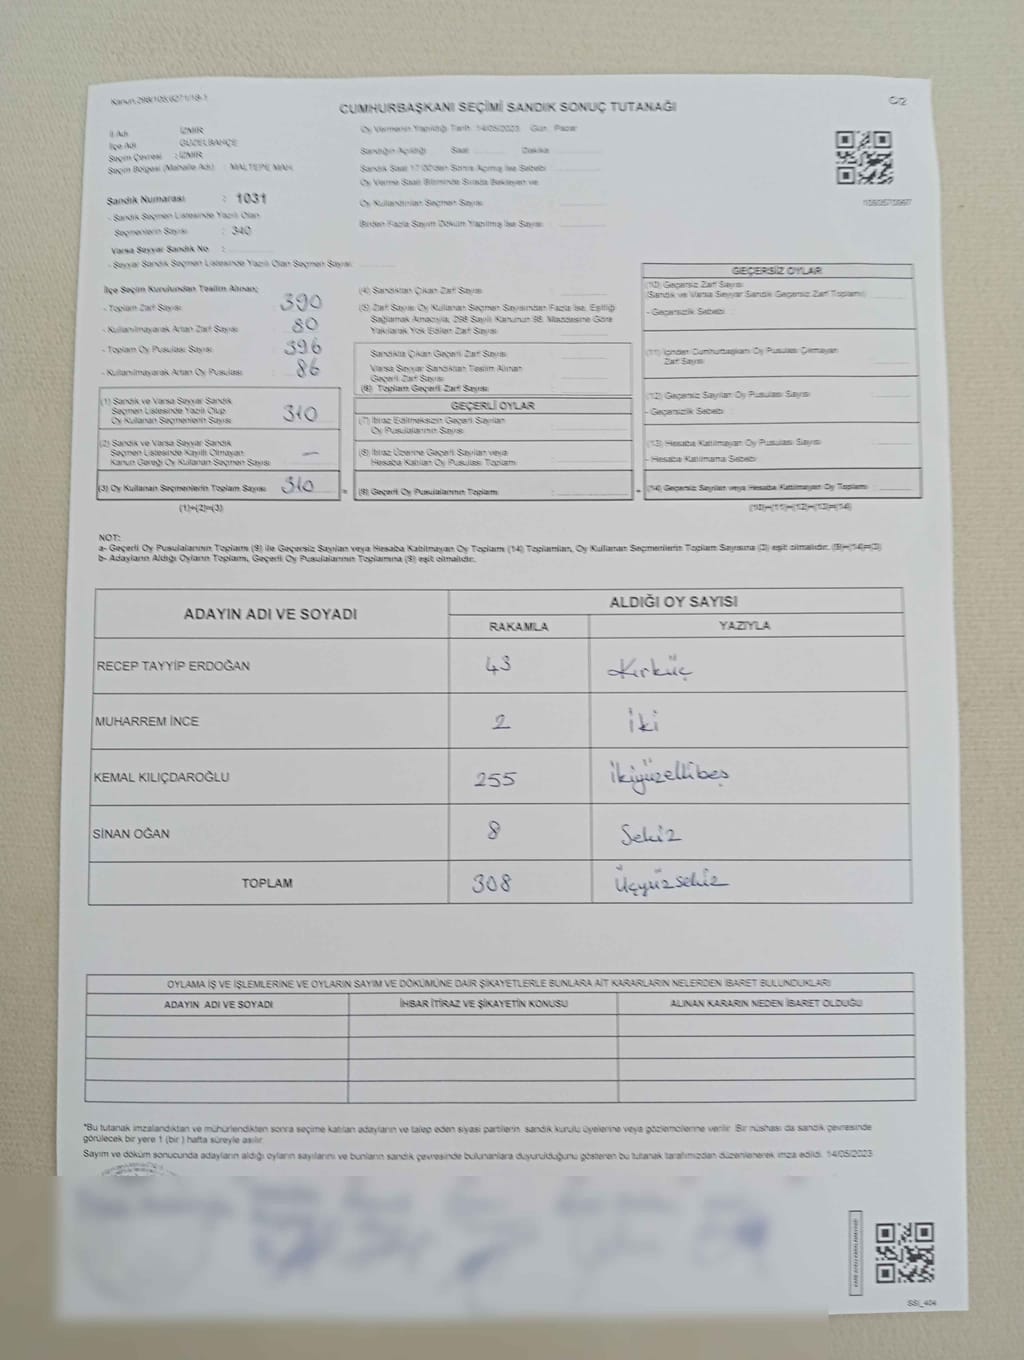 Kanun 298/105;6271/18-1
CUMHURBAŞKANI SEÇİMİ SANDIK SONUÇ TUTANAĞI
C/2
İl Adı : İZMİR
İlçe Adı : GÜZELBAHÇE
Seçim Çevresi : İZMİR
Seçim Bölgesi (Mahalle Adı) : MALTEPE MAH.
Oy Vermenin Yapıldığı Tarih: 14/05/2023 Gün: Pazar
Sandığın Açıldığı Saat: Dakika:
Sandık Saat 17:00'den Sonra Açılmış İse Sebebi
Oy Verme Saati Bitiminde Sırada Bekleyen ve
Oy Kullandırılan Seçmen Sayısı
Birden Fazla Sayım Döküm Yapılmış İse Sayısı
Sandık Numarası : 1031
- Sandık Seçmen Listesinde Yazılı Olan
Seçmenlerin Sayısı : 340
Varsa Seyyar Sandık No :
- Seyyar Sandık Seçmen Listesinde Yazılı Olan Seçmen Sayısı:
İlçe Seçim Kurulundan Teslim Alınan;
- Toplam Zarf Sayısı : 390
- Kullanılmayarak Artan Zarf Sayısı : 80
- Toplam Oy Pusulası Sayısı : 396
- Kullanılmayarak Artan Oy Pusulası : 86
(1) Sandık ve Varsa Seyyar Sandık
Seçmen Listesinde Yazılı Olup
Oy Kullanan Seçmenlerin Sayısı : 310
(2) Sandık ve Varsa Seyyar Sandık
Seçmen Listesinde Kayıtlı Olmayan
Kanun Gereği Oy Kullanan Seçmen Sayısı : —
(3) Oy Kullanan Seçmenlerin Toplam Sayısı : 310
(1)+(2)=(3)
(4) Sandıktan Çıkan Zarf Sayısı
(5) Zarf Sayısı Oy Kullanan Seçmen Sayısından Fazla İse, Eşitliği
Sağlamak Amacıyla, 298 Sayılı Kanunun 98. Maddesine Göre
Yakılarak Yok Edilen Zarf Sayısı
Sandıkta Çıkan Geçerli Zarf Sayısı
Varsa Seyyar Sandıktan Teslim Alınan
Geçerli Zarf Sayısı
(6) Toplam Geçerli Zarf Sayısı
GEÇERLİ OYLAR
(7) İtiraz Edilmeksizin Geçerli Sayılan
Oy Pusulalarının Sayısı
(8) İtiraz Üzerine Geçerli Sayılan veya
Hesaba Katılan Oy Pusulası Toplamı
(9) Geçerli Oy Pusulalarının Toplamı
GEÇERSİZ OYLAR
(10) Geçersiz Zarf Sayısı
(Sandık ve Varsa Seyyar Sandık Geçersiz Zarf Toplamı)
- Geçersizlik Sebebi :
(11) İçinden Cumhurbaşkanı Oy Pusulası Çıkmayan
Zarf Sayısı
(12) Geçersiz Sayılan Oy Pusulası Sayısı
- Geçersizlik Sebebi :
(13) Hesaba Katılmayan Oy Pusulası Sayısı
- Hesaba Katılmama Sebebi
(14) Geçersiz Sayılan veya Hesaba Katılmayan Oy Toplamı
(10)+(11)+(12)+(13)=(14)
NOT:
a- Geçerli Oy Pusulalarının Toplamı (9) ile Geçersiz Sayılan veya Hesaba Katılmayan Oy Toplamı (14) Toplamları, Oy Kullanan Seçmenlerin Toplam Sayısına (3) eşit olmalıdır. (9)+(14)=(3)
b- Adayların Aldığı Oyların Toplamı, Geçerli Oy Pusulalarının Toplamına (9) eşit olmalıdır.
ADAYIN ADI VE SOYADI
ALDIĞI OY SAYISI
RAKAMLA YAZIYLA
RECEP TAYYİP ERDOĞAN 43 Kırküç
MUHARREM İNCE 2 İki
KEMAL KILIÇDAROĞLU 255 İkiyüzellibeş
SİNAN OĞAN 8 Sekiz
TOPLAM 308 Üçyüzsekiz
OYLAMA İŞ VE İŞLEMLERİNE VE OYLARIN SAYIM VE DÖKÜMÜNE DAİR ŞİKAYETLERLE BUNLARA AİT KARARLARIN NELERDEN İBARET BULUNDUKLARI
ADAYIN ADI VE SOYADI İHBAR İTİRAZ VE ŞİKAYETİN KONUSU ALINAN KARARIN NEDEN İBARET OLDUĞU
*Bu tutanak imzalandıktan ve mühürlendikten sonra seçime katılan adayların ve talep eden siyasi partilerin, sandık kurulu üyelerine veya gözlemcilerine verilir. Bir nüshası da sandık çevresinde
görülecek bir yere 1 (bir) hafta süreyle asılır.
Sayım ve döküm sonucunda adayların aldığı oyların sayılarını ve bunların sandık çevresinde bulunanlara duyurulduğunu gösteren bu tutanak tarafımızdan düzenlenerek imza edildi. 14/05/2023
SSİ_404